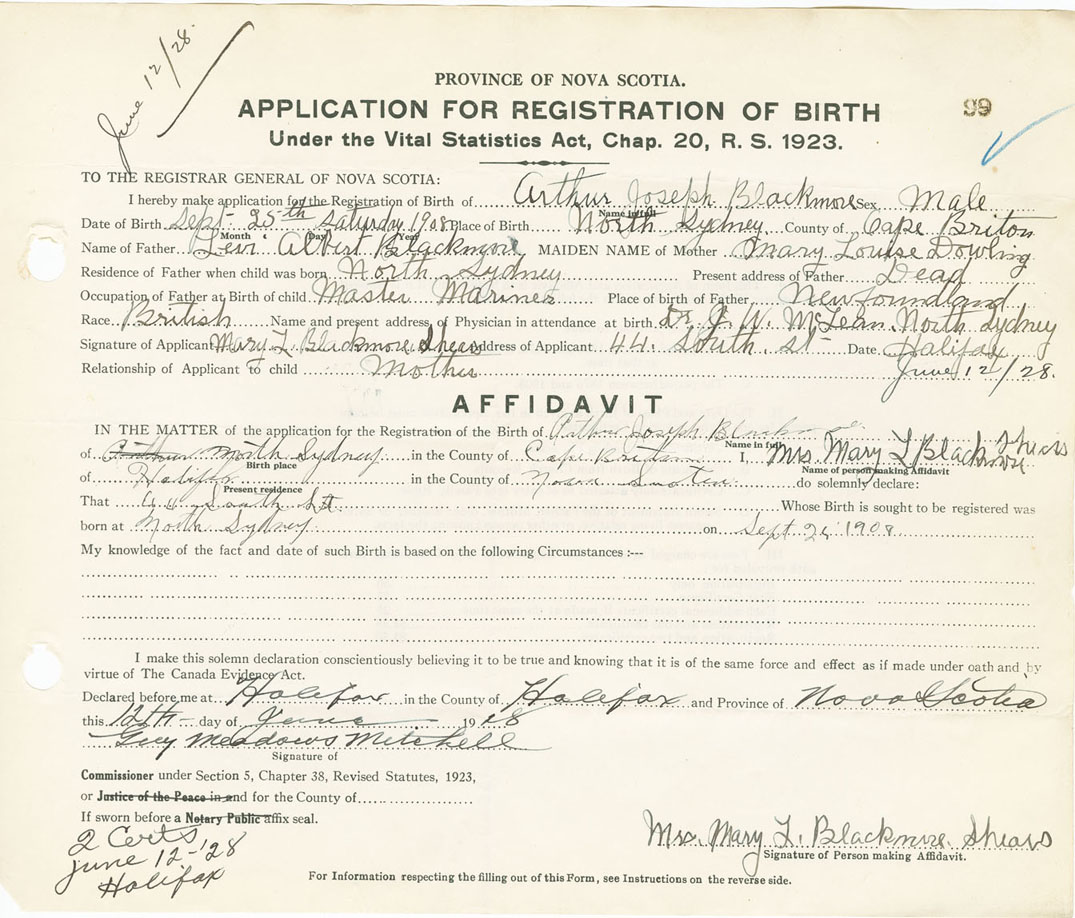 June 12/28.
PROVINCE OF NOVA SCOTIA.
APPLICATION FOR REGISTRATION OF BIRTH
99
Under the Vital Statistics Act, Chap. 20, R. S. 1923.
TO THE REGISTRAR GENERAL OF NOVA SCOTIA:
I hereby make application for the Registration of Birth of Arthur Joseph Blackmore Sex Male
Name in full
Date of Birth Sept- 25th Saturday 1908 Place of Birth North Sydney County of Cape Briton
Month Day Year
Name of Father Levi Albert Blackmore MAIDEN NAME of Mother Mary Louise Dowling
Residence of Father when child was born North Sydney Present address of Father Dead
Occupation of Father at Birth of child Master Mariner Place of birth of Father Newfoundland
Race British Name and present address of Physician in attendance at birth Dr. J. W. McLean. North Sydney
Signature of Applicant Mary L. Blackmore Shears Address of Applicant 44. South. St- Date Halifax
Relationship of Applicant to child Mother June 12/28.
AFFIDAVIT
IN THE MATTER of the application for the Registration of the Birth of Arthur Joseph Blackmore
Name in full
of Arthur North Sydney in the County of Cape Breton I, Mrs Mary L Blackmore Shears
Birth place Name of person making Affidavit
of Halifax in the County of Nova Scotia do solemnly declare:
Present residence
That 44 South St. Whose Birth is sought to be registered was
born at North Sydney on Sept 1908
My knowledge of the fact and date of such Birth is based on the following Circumstances :---
I make this solemn declaration conscientiously believing it to be true and knowing that it is of the same force and effect as if made under oath and by
virtue of The Canada Evidence Act.
Declared before me at Halifax in the County of Halifax and Province of Nova Scotia
this 12th- day of June 1928
Guy Meadows Mitchell
Signature of
Commissioner under Section 5, Chapter 38, Revised Statutes, 1923,
or Justice of the Peace in and for the County of
If sworn before a Notary Public affix seal.
2 Certs
June 12-'28
Halifax
Mrs. Mary L. Blackmore. Shears
Signature of Person making Affidavit.
For Information respecting the filling out of this Form, see Instructions on the reverse side.